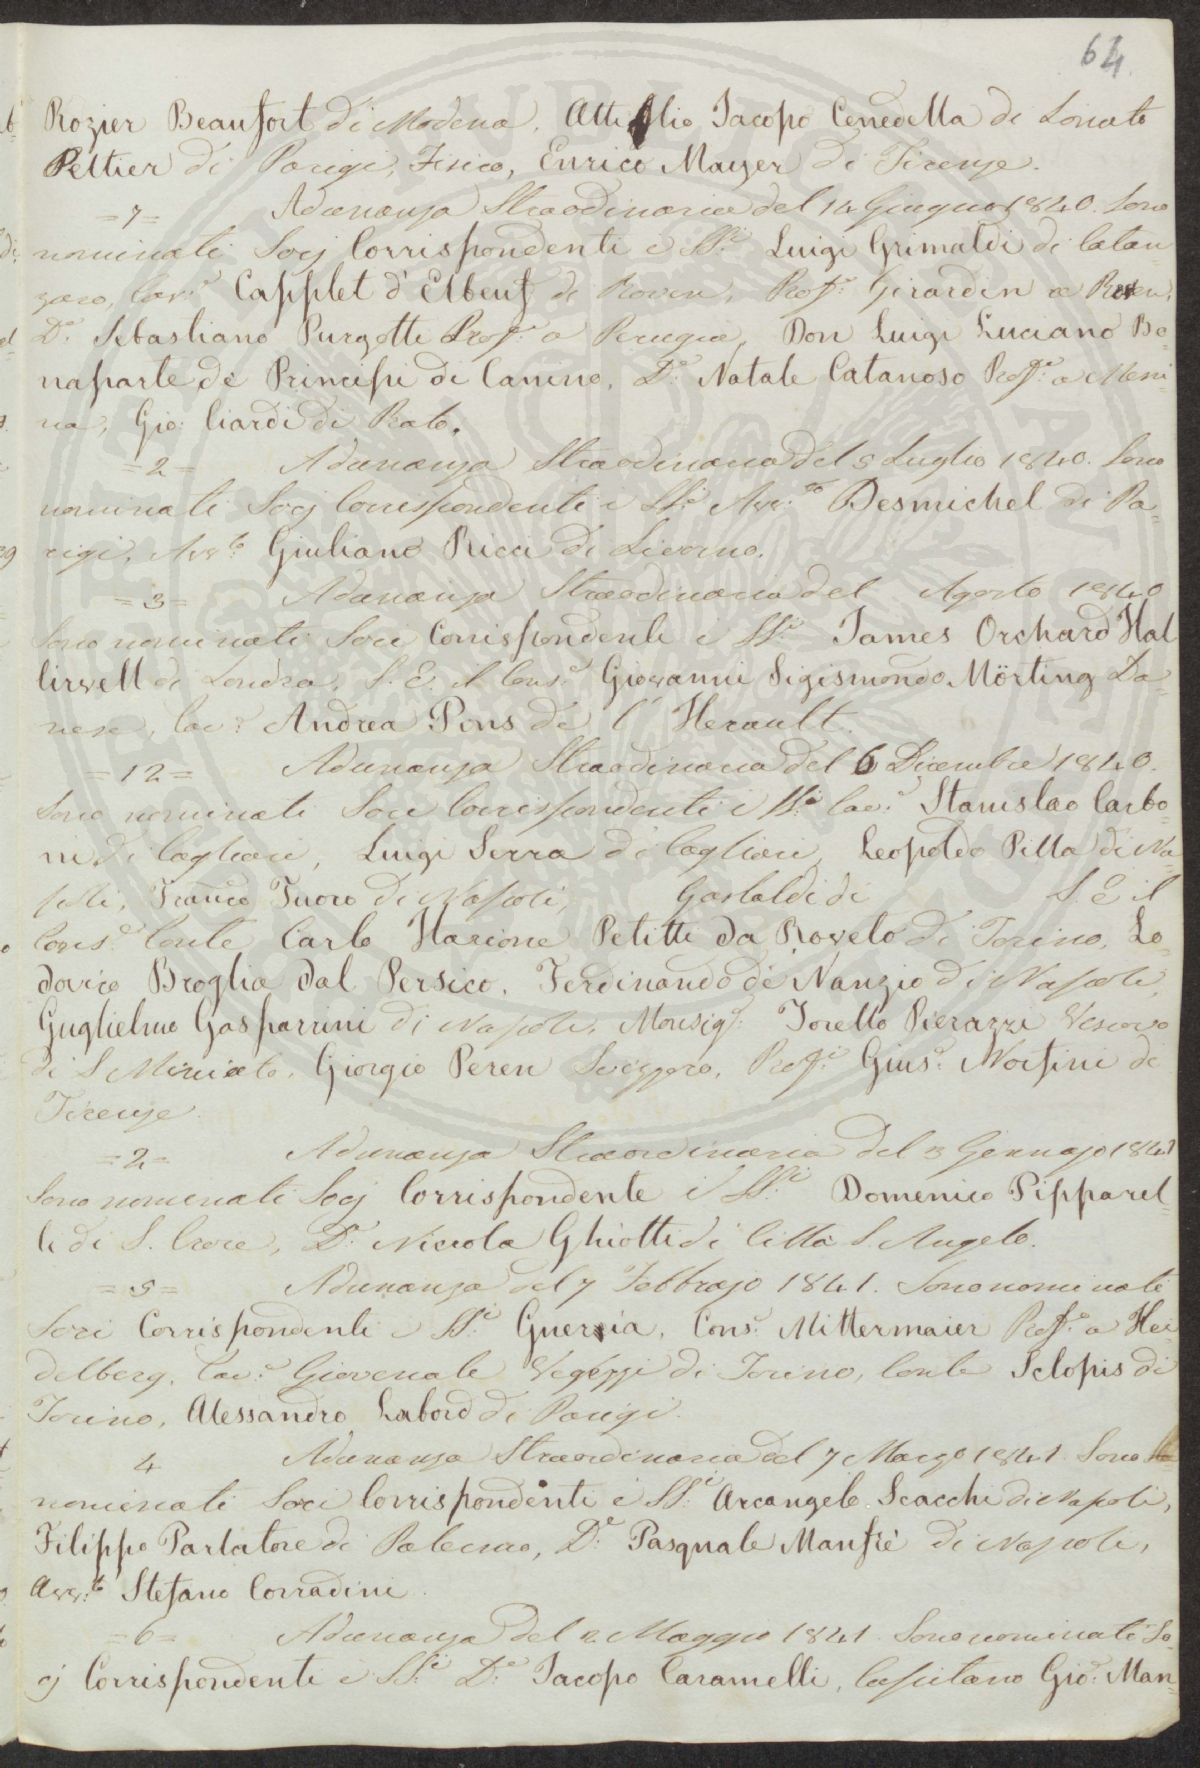 64
Rozier Beaufort di Modena, Attilio Jacopo Cenedella di Lonato
Peltier di Parigi, Fisico, Enrico Mayer di Firenze.
=7= Adunanza Straodinaria del 14 Giugno 1840. Sono
nominati Socj Corrispondenti i SS.i Luigi Grimaldi di Catan=
zaro, Cav.e Capplet d'Elbeuf di Roven, Prof.e Girardin a Roven,
D.e Sebastiano Purgotti Prof.e a Perugia, Don Luigi Luciano Bo=
naparte de' Principi di Canino, D.e Natale Catanoso Prof.e a Messi=
na, Gio: Ciardi di Prato.
=2= Adunanza Straodinaria del 5 Luglio 1840. Sono
nominati Socj Corrispondenti i SS.i Avv.to Desmichel di Pa=
rigi, Avv.to Giuliano Ricci di Livorno.
=3= Adunanza Straodinaria del Agosto 1840
Sono nominati Soci Corrispondenti i SS.i James Orchard Hal
lirvell di Londra, S. E. il Cons.e Giovanni Sigismondo Mörting Da=
nese, Cav.e Andrea Pons de l'Herault.
=12= Adunanza Straodinaria del 6 Dicembre 1840.
Sono nominati Soci Corrispondenti i SS.i Cav.e Stanislao Carbo
ni di Cagliari, Luigi Serra di Cagliari, Leopoldo Pilla di Na=
poli, Franco Fuoco di Napoli, Gastaldi di S. E. il
Cons.e Conte Carlo Ilarione Petitti da Rovelo di Torino, Lo=
dovico Broglia dal Persico, Ferdinando de' Nanzio di Napoli,
Guglielmo Gasparrini di Napoli, Monsig.e Torello Pierazzi Vescovo
di S. Miniato, Giorgio Peren Svizzero, Prof.e Gius.e Norfini di
Firenze.
=2= Adunanza Straordinaria del 3 Gennajo 1841
Sono nominati Socj Corrispondente i SS.i Domenico Pipparel=
li di S. Croce, D.e Niccola Ghiotti di Città S. Angelo.
=5= Adunanza del 7 Febbrajo 1841. Sono nominati
Soci Corrispondenti i SS.i Guerria, Cons.e Mittermaier Prof.e a Hei
delberg, Cav.e Giovenale Vegezzi di Torino, Conte Sclopis di
Torino, Alessandro Labord di Parigi.
4 Adunanza Straordinaria del 7 Marzo 1841. Sono
nominati Soci Corrispondenti i SS.i Arcangelo Scacchi di Napoli,
Filippo Parlatore di Palermo, D.e Pasquale Manfrè di Napoli,
Avv.to Stefano Corradini.
=6= Adunanza del 2 Maggio 1841 Sono nominati So=
cj Corrispondenti i SS.i D.e Jacopo Caramelli, Capitano Gio.e Man=